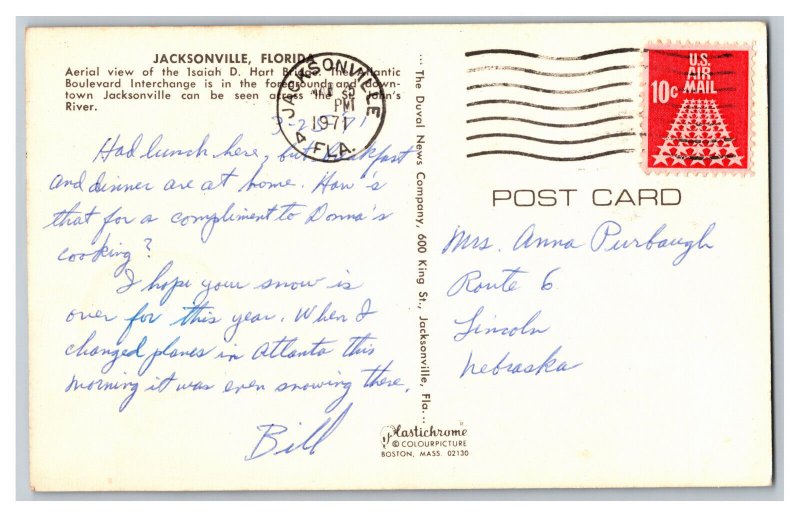 JACKSONVILLE, FLORIDA
Aerial view of the Isaiah D. Hart Bridge. The Atlantic
Boulevard Interchange is in the foreground and down-
town Jacksonville can be seen across the St. John's
River.
JACKSONVILLE
PM
1971
FLA.
U.S.
AIR
MAIL
10c
Had lunch here, but breakfast
and dinner are at home. How's
that for a compliment to Donna's
cooking?
I hope your snow is
over for this year. When I
changed planes in Atlanta this
morning it was even snowing there.
Bill
... The Duval News Company, 600 King St., Jacksonville, Fla. ...
Plastichrome
© COLOURPICTURE
BOSTON, MASS. 02130
POST CARD
Mrs. Anna Purbaugh
Route 6
Lincoln
Nebraska